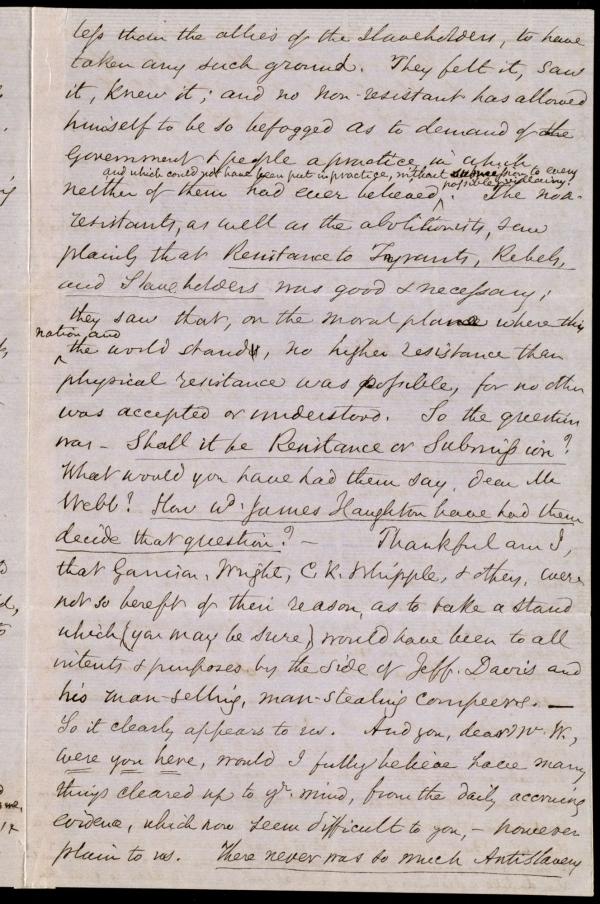 less than the allies of the slaveholders, to have
taken any such ground. They felt it, saw
it, knew it; and no Non-resistant has allowed
himself to be so befogged as to demand of the
Government & people a practice, in which
and which could not have been put in practice, without supine from to every
possible villainy.
neither of them had ever believed ^. The non-
resistants, as well as the abolitionists, saw
plainly that Resistance to Tyrants, Rebels,
and Slaveholders was good & necessary;
they saw that, on the moral plane where this
nation and
^ the world stands, no higher resistance than
physical resistance was possible, for no other
was accepted or understood. So the question
was – Shall it be Resistance or Submission?
What would you have had them say, dear Mr
Webb? How wd. James Haughton have had them
decide that question? – Thankful am I,
that Garrison, Wright, C. K. Whipple, & others, were
not so bereft of their reason, as to take a stand
which (you may be sure) would have been to all
intents & purposes by the side of Jeff. Davis and
his man-selling, man-stealing compeers. —
So it clearly appears to us. And you, dear Mr. W.,
were you here, would I fully believe have many
things cleared up to yr. mind, from the daily accruing
evidence, which now seem difficult to you, – however
plain to us. There never was so much Antislavery